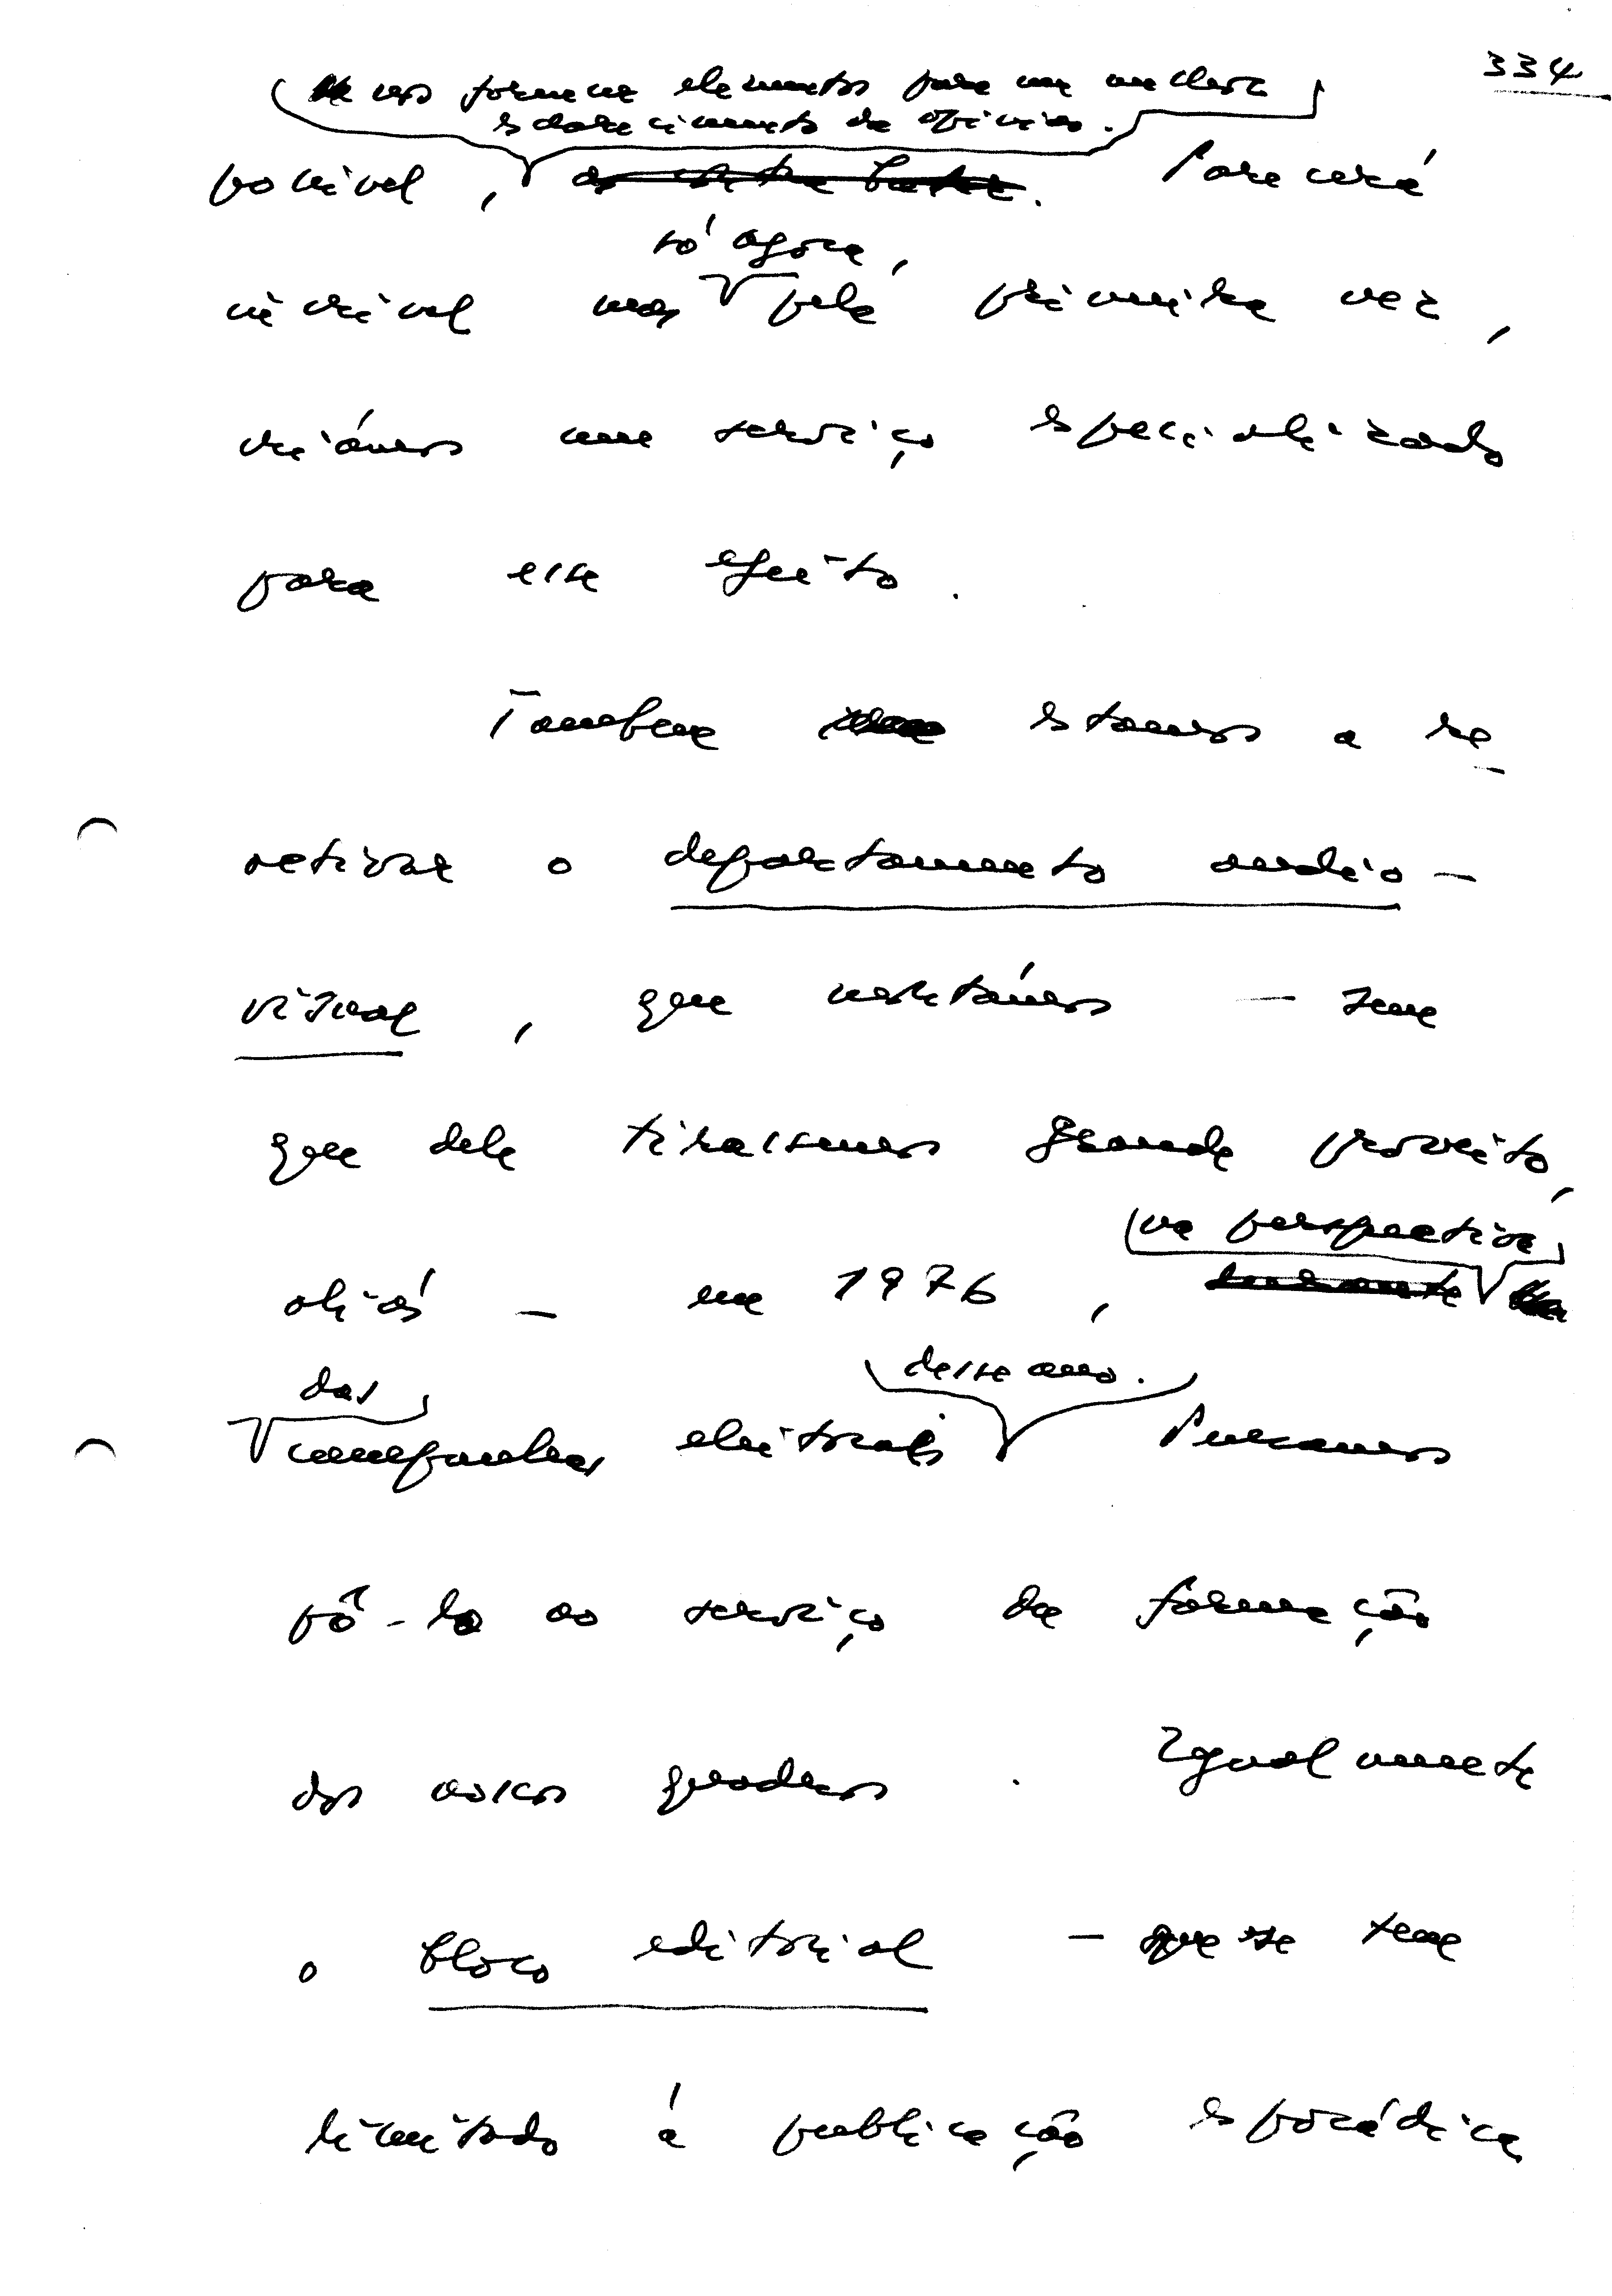 334
nos fornecer elementos para um melhor
esclarecimento da opinião.
possível, Parecerá
só agora,
incrível mas pela primeira vez,
criámos um serviço especializado
para esse efeito.
Também estamos a re-
activar o departamento audio-
visual, que montámos — sem
que dele tirássemos grande proveito,
na perspectiva
aliás — em 1976,
das desse ano.
campanhas eleitorais Procuramos
pô-lo ao serviço da formação
dos nossos quadros. Igualmente
o bloco editorial — que se tem
limitado à publicação esporádica